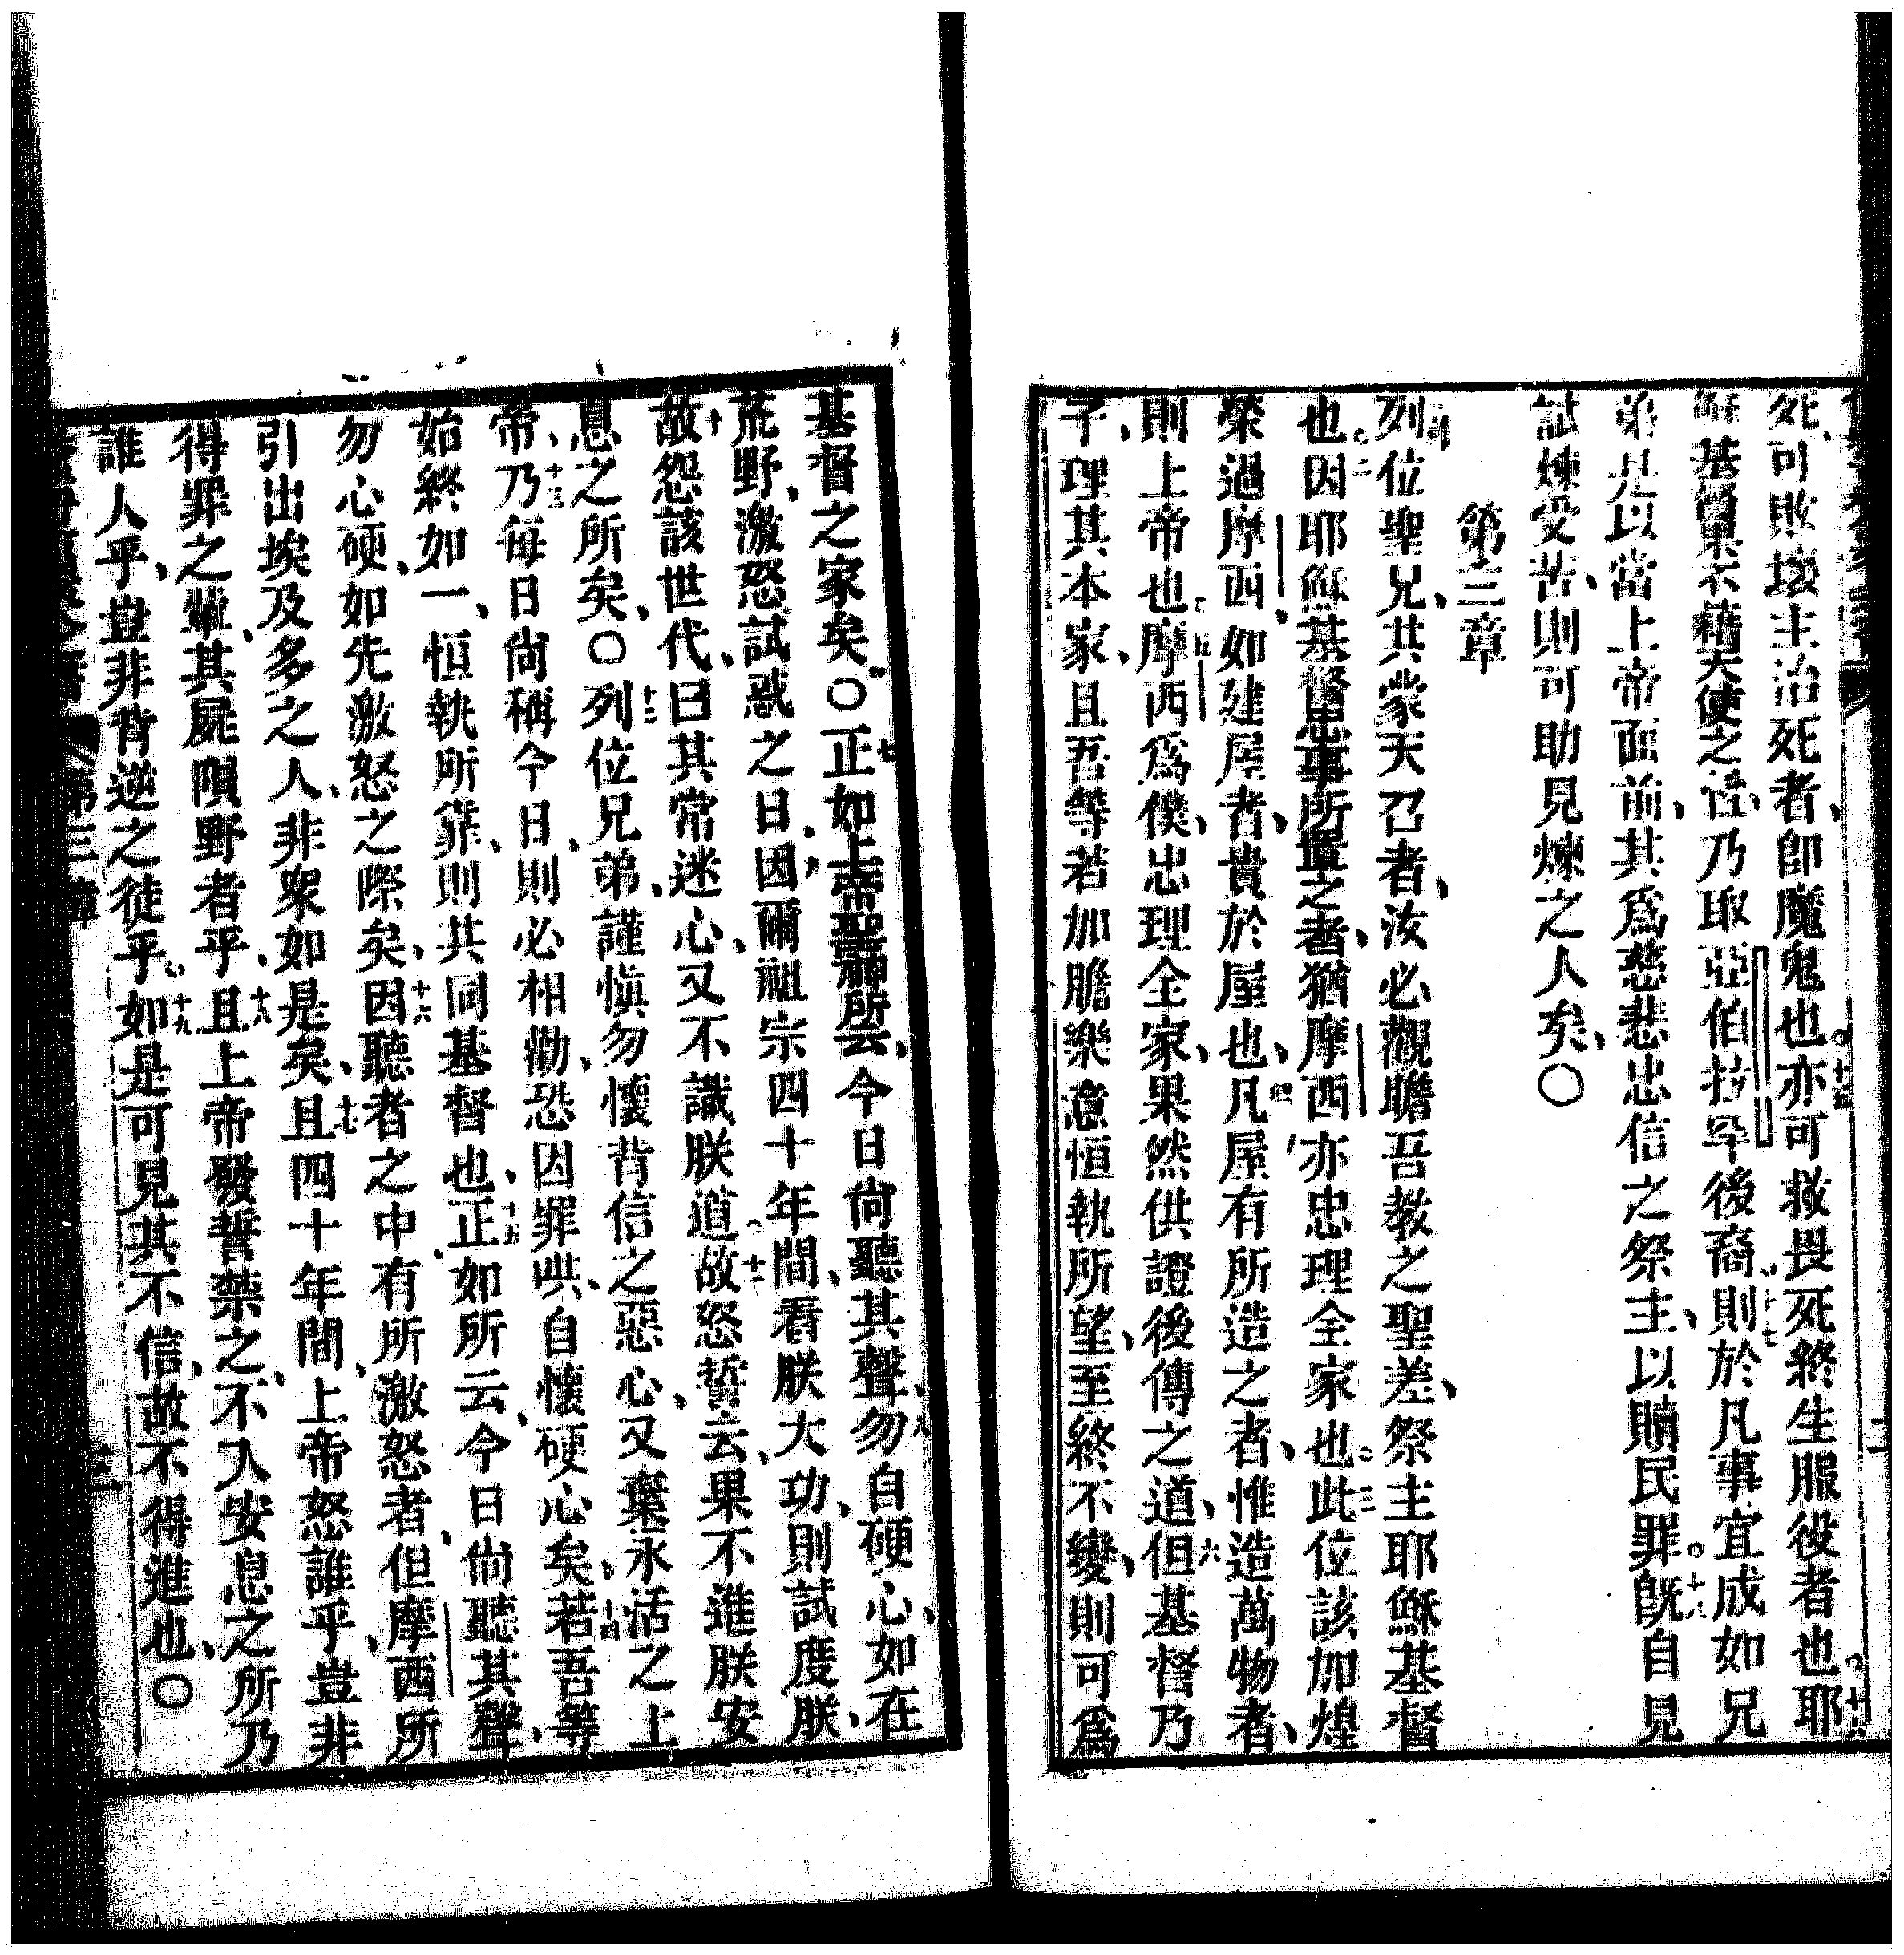 死、可敗壞主治死者、卽魔鬼也。十五亦可救畏死終生服役者也。十六耶
穌基督果不藉天使之性、乃取亞伯拉罕後裔。十七則於凡事宜成如兄
弟是以當上帝面前、其爲慈悲忠信之祭主、以贖民罪。十八旣自見
試煉受苦、則可助見煉之人矣、〇
第三章
列位聖兄、共蒙天召者、汝必觀瞻吾教之聖差、祭主耶穌基督
也。二因耶穌基督忠事所置之者、猶摩西亦忠理全家也。三此位該加煌
榮過摩西、如建屋者、貴於屋也、四凡屋有所造之者、惟造萬物者、
則上帝也。五摩西爲僕、忠理全家、果然供證後傳之道、六但基督乃
子、理其本家、且吾等若加膽樂意恒執所望、至終不變、則可爲
基督之家矣。〇七正如上帝聖神所云、今日尙聽其聲、八勿自硬心、如在
荒野、激怒試惑之日、九因爾祖宗四十年間、看朕大功、則試度朕、
十故怨該世代、曰其常迷心、又不識朕道。十一故怒誓云、果不進朕安
息之所矣、〇十二列位兄弟、謹愼勿懷背信之惡心、又棄永活之上
帝、十三乃每日尙稱今日、則必相勸、恐因罪哄、自懷硬心矣。十四若吾等
始終如一、恒執所靠、則共同基督也、十五正如所云、今日尙聽其聲、
勿心硬、如先激怒之際矣、十六因聽者之中有所激怒者、但摩西所
引出埃及多之人、非衆如是矣、十七且四十年間、上帝怒誰乎、豈非
得罪之輩、其屍隕野者乎、十八且上帝發誓禁之、不入安息之所、乃
誰人乎、豈非背逆之徒乎。十九如是可見其不信、故不得進也、〇
第三章
三